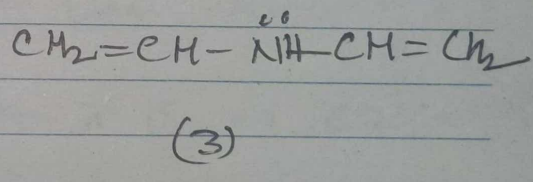 CH₂=CH-N̈H-CH=CH₂
(3)